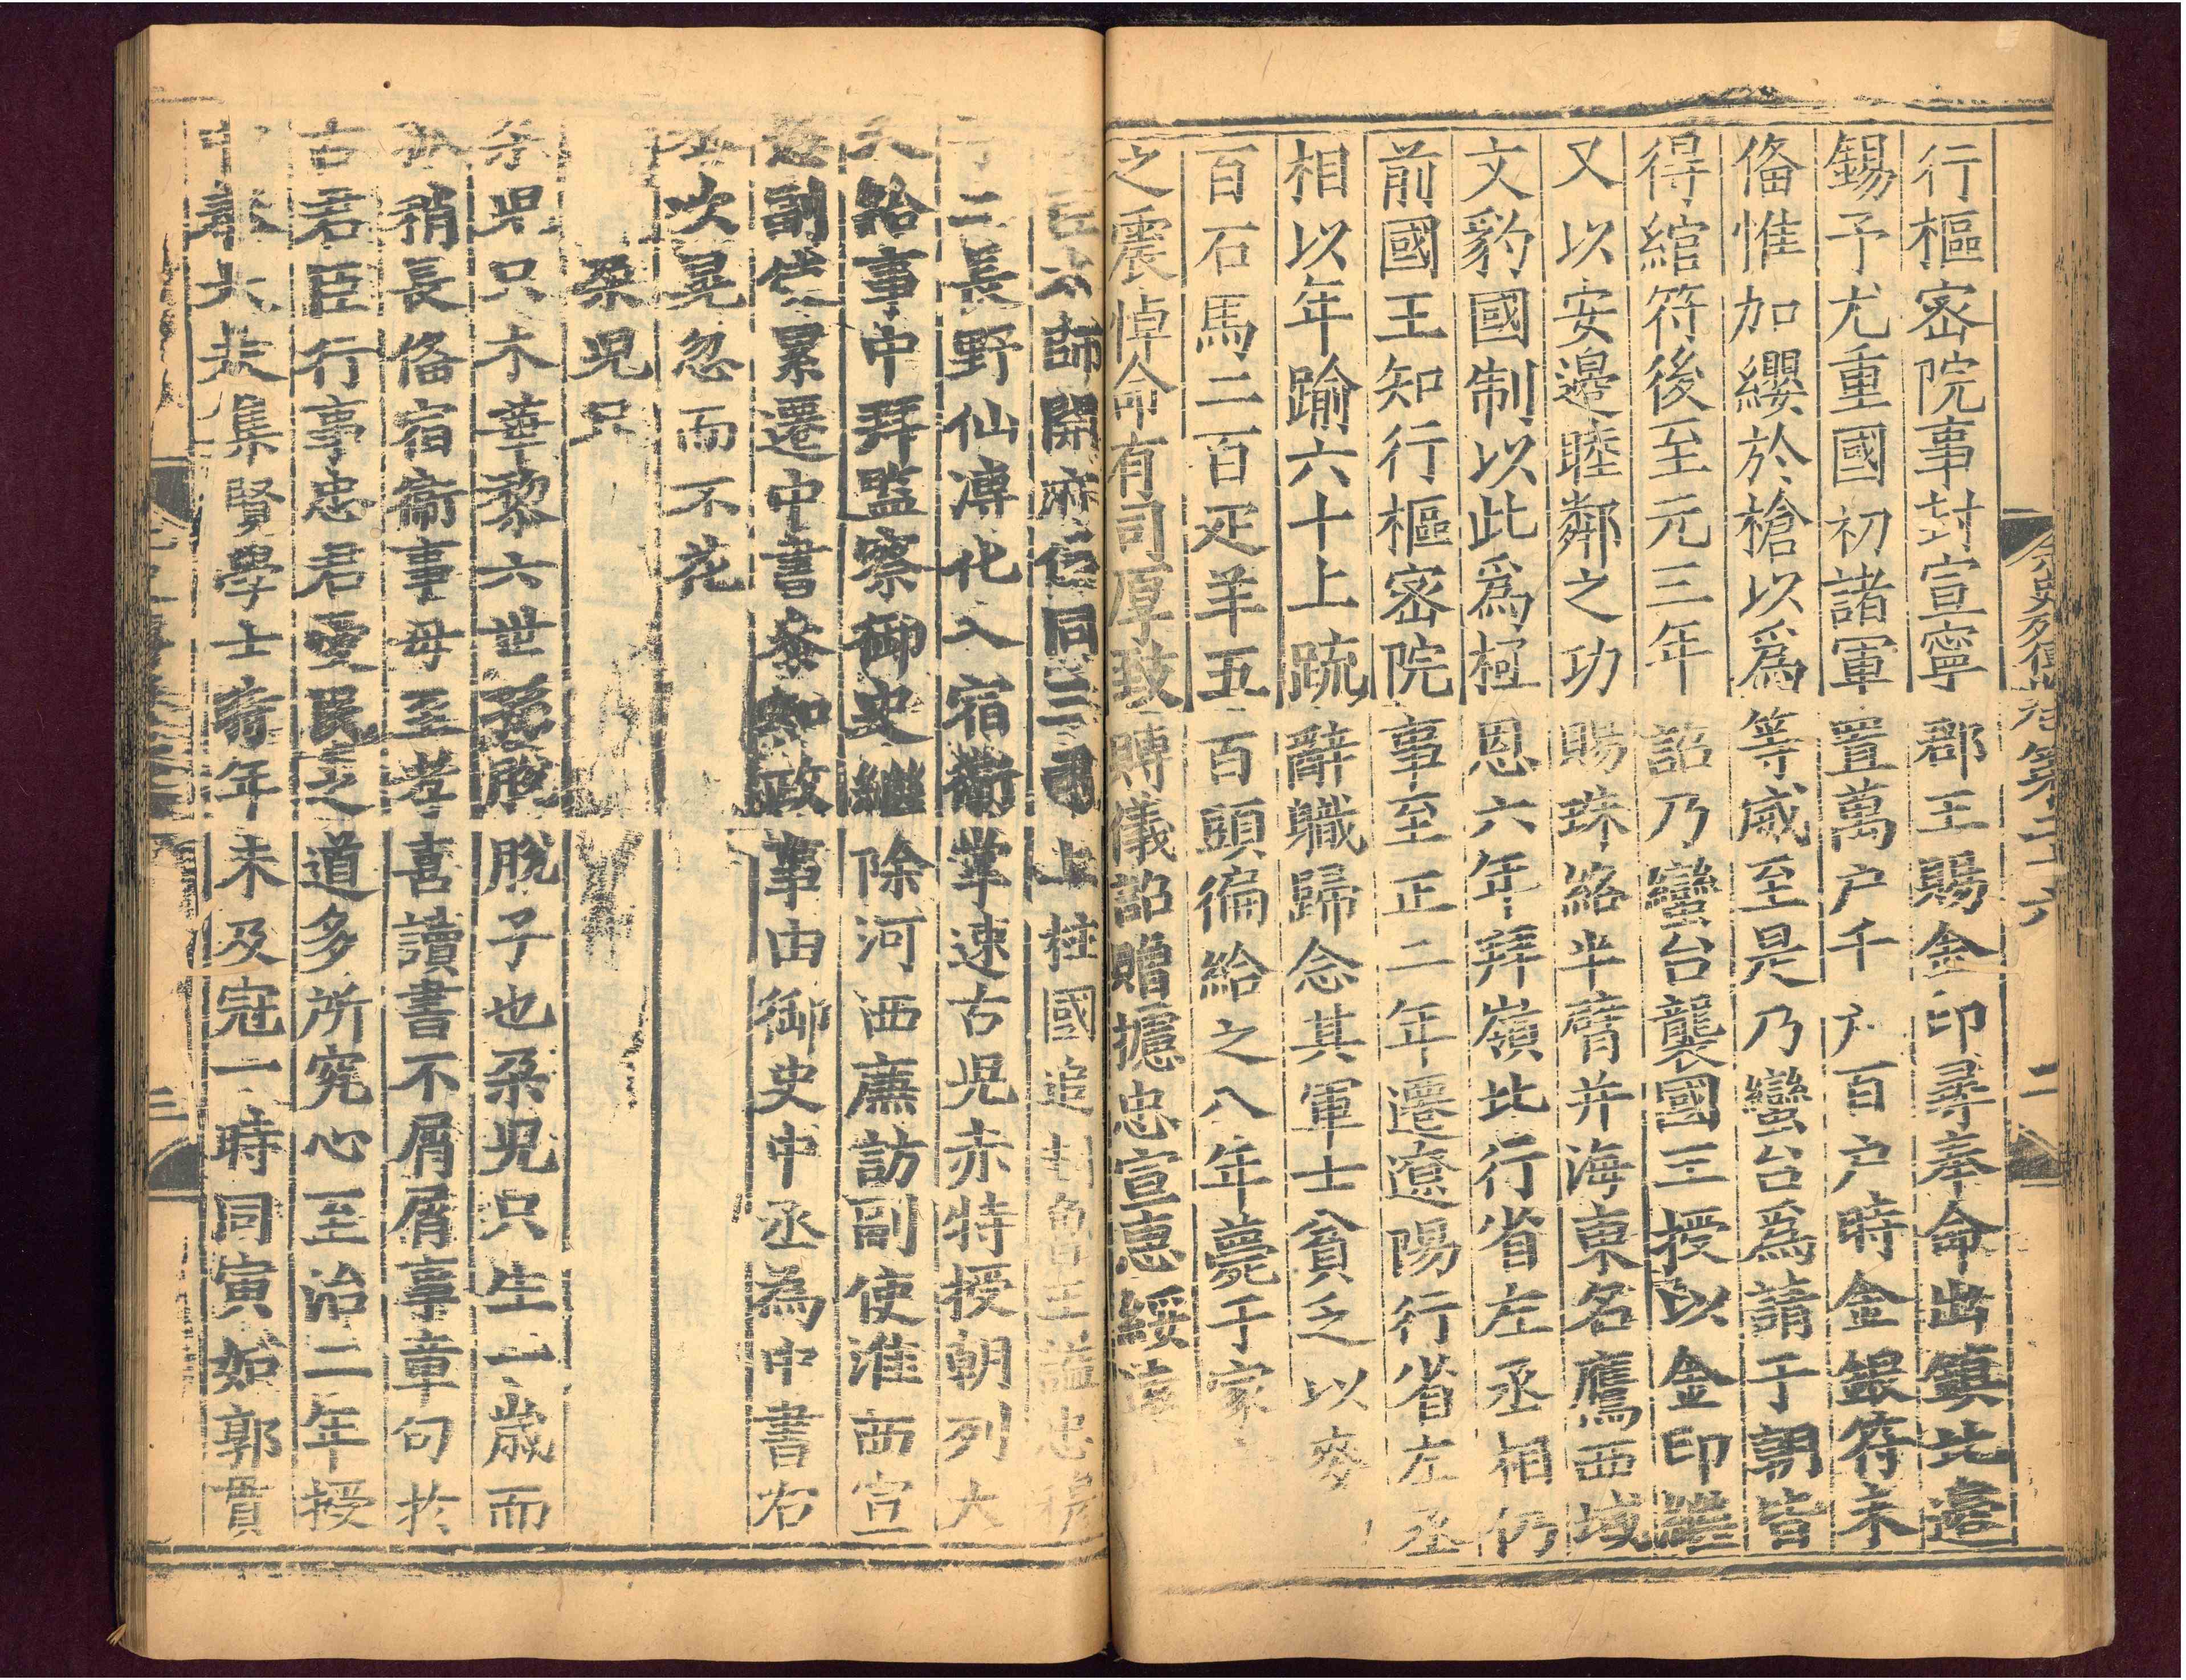 元史列傳卷第二十六 二
行樞密院事封宣寧郡王賜金印尋奉命出鎮北邊
錫予尤重國初諸軍置萬户千户百户時金銀符未
俻惟加纓於槍以爲等威至是乃蠻台爲請于朝皆
得綰符後至元三年詔乃蠻台襲國王授以金印繼
又以安邊睦鄰之功賜珠絡半臂并海東名鷹西域
文豹國制以此爲極恩六年拜嶺北行省左丞相仍
前國王知行樞密院事至正二年遷遼陽行省左丞
相以年踰六十上疏辭職歸念其軍士貧乏以麥
百石馬二百疋羊五百頭徧給之八年薨于家
之震悼命有司厚致賻儀詔贈攄忠宣惠綏遠
太師開府儀同三司上柱國追封魯王諡忠穆
子二長野仙溥化入宿衞掌速古児赤特授朝列大
夫給事中拜監察御史繼除河西廉訪副使淮西宣
慰副使累遷中書參知政事由御史中丞為中書右
丞次晃忽而不花
朶児只
朶児只木華黎六世孫脫脫子也朶児只生一歲而
孤稍長俻宿衞事母至孝喜讀書不屑屑事章句於
古君臣行事忠君愛民之道多所究心至治二年授
中奉大夫集賢學士時年未及冠一時同寅如郭貫
三